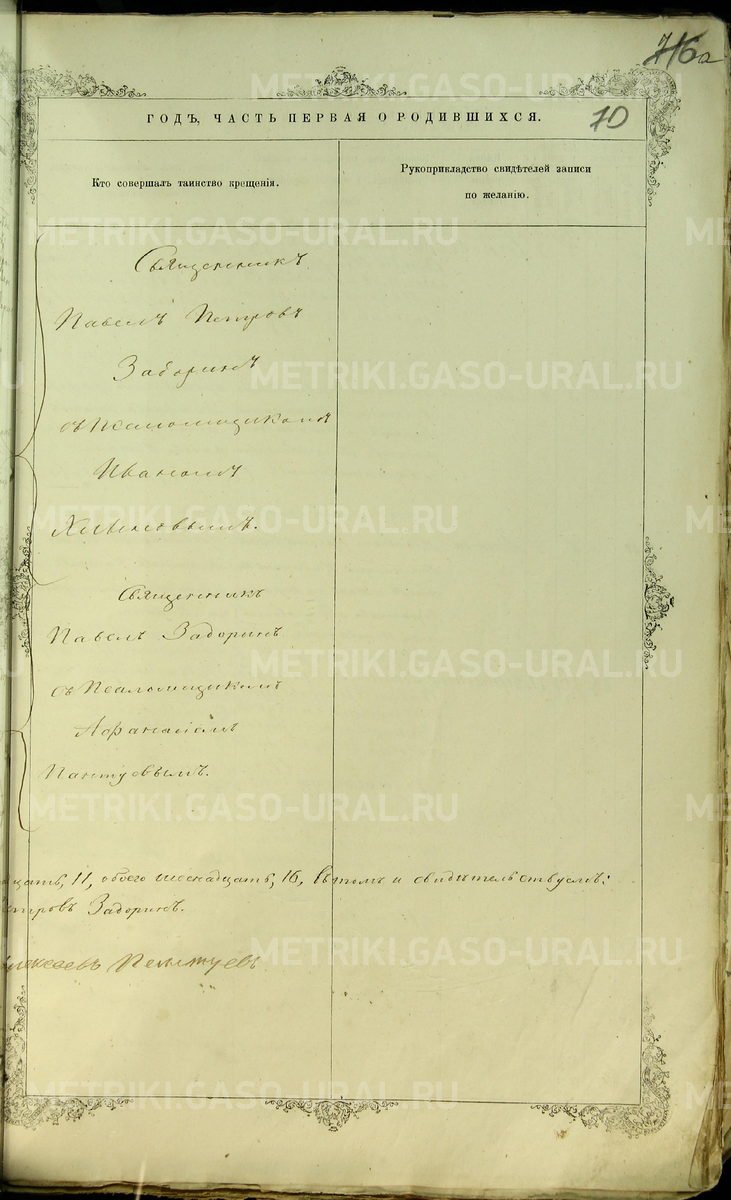 716а
70
ГОДЪ, ЧАСТЬ ПЕРВАЯ О РОДИВШИХСЯ.
Кто совершалъ таинство крещенія.
Рукоприкладство свидѣтелей записи
по желанію.
Священникъ
Павелъ Петровъ
Задоринъ
съ Псаломщикомъ
Иваномъ
Священникъ
Павелъ Задоринъ
съ Псаломщикомъ
Афанасіемъ
Пантуевымъ.
цать, 11, обоего шеснадцать, 16, въ томъ и свидѣтельствуемъ:
етровъ Задоринъ.
лексеевъ Пантуевъ
METRIKI.GASO-URAL.RU